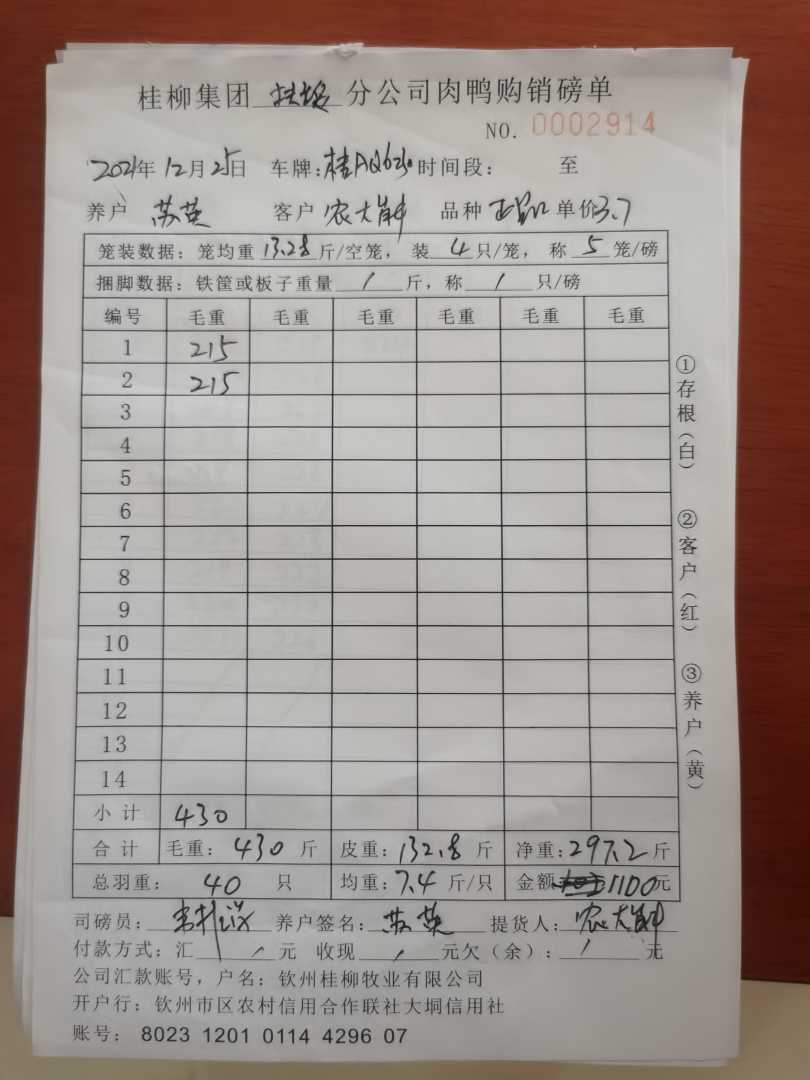 桂柳集团 分公司肉鸭购销磅单
NO. 0002914
2021年12月25日 车牌:桂AQ6230 时间段: 至
养户 苏英 客户 农大 品种 单价3.7
笼装数据: 笼均重 13.28 斤/空笼, 装 4 只/笼, 称 5 笼/磅
捆脚数据: 铁筐或板子重量 / 斤, 称 / 只/磅
编号 毛重 毛重 毛重 毛重 毛重 毛重
1 215
2 215
3
4
5
6
7
8
9
10
11
12
13
14
小计 430
合计 毛重: 430 斤 皮重: 132.8 斤 净重: 297.2 斤
总羽重: 40 只 均重: 7.4 斤/只 金额 1100元
司磅员: 养户签名: 苏英 提货人: 农大
付款方式: 汇 / 元 收现 / 元欠(余): / 元
公司汇款账号, 户名: 钦州桂柳牧业有限公司
开户行: 钦州市区农村信用合作联社大垌信用社
账号: 8023 1201 0114 4296 07
①存根(白) ②客户(红) ③养户(黄)